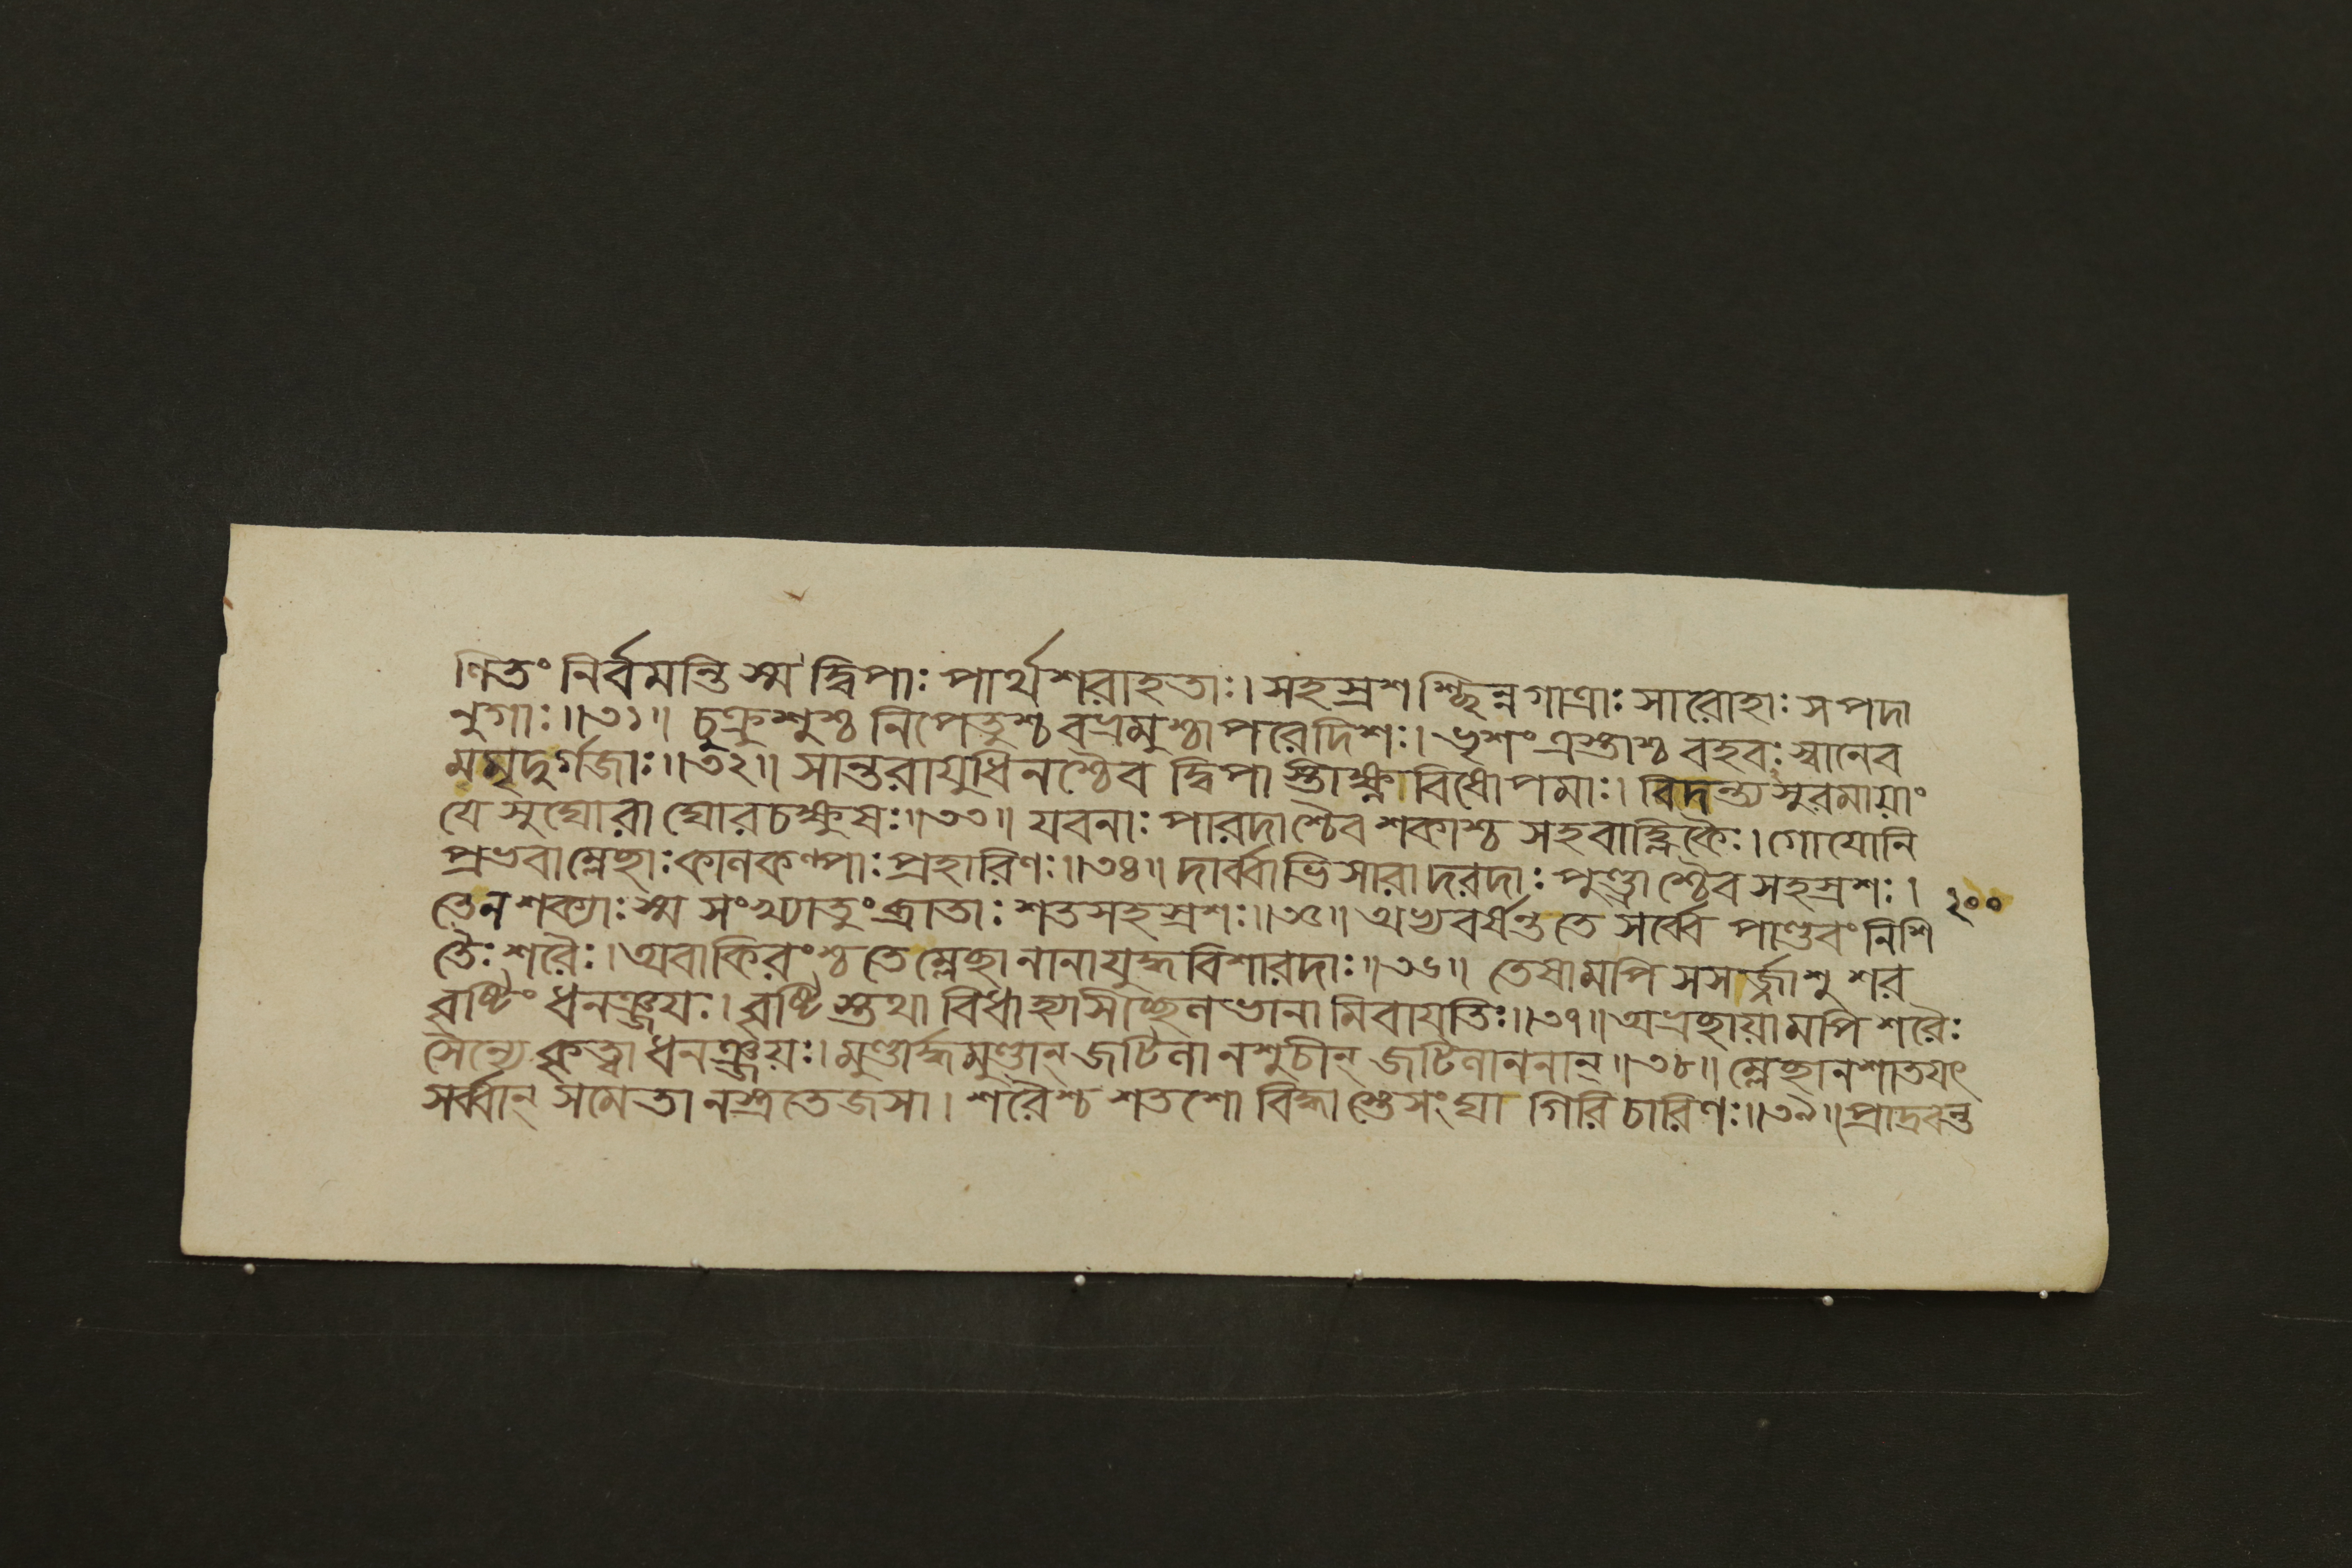 ণিতং নির্বমন্তি স্ম দ্বিপাঃ পার্থশরাহতাঃ। সহস্রশশ্ছিন্নগাত্রাঃ সারোহাঃ সপদা
নুগাঃ॥৩১॥ চুক্রুশুশ্চ নিপেতুশ্চ বভ্রমুশ্চাপরেদিশঃ। ভৃশং ত্রস্তাশ্চ বহবঃ স্বানেব
মমৃদুর্গজাঃ॥৩২॥ সান্তরায়ুধিনশ্চৈব দ্বিপাস্তীক্ষ্ণাবিষোপমাঃ। বিদন্ত্যসুরমায়াং
যে সুঘোরা ঘোরচক্ষুষঃ॥৩৩॥ যবনাঃ পারদাশ্চৈব শকাশ্চ সহবাহ্লিকৈঃ। গোযোনি
প্রভবাম্লেছাঃ কানকল্পাঃ প্রহারিণঃ॥৩৪॥ দার্ব্বাভিসারাদরদাঃ পুণ্ড্রাশ্চৈব সহস্রশঃ। ২০০
তেনশক্যাঃ স্ম সংখ্যাতুং ব্রাতাঃ শতসহস্রশঃ॥৩৫॥ অভ্যবর্ষন্ত তে সর্ব্বে পাণ্ডবং নিশি
তৈঃ শরৈঃ। অবাকিরংশ্চ তে ম্লেছানানাযুদ্ধবিশারদাঃ॥৩৬॥ তেষামপি সসর্জ্জাশু শর
বৃষ্টিং ধনঞ্জয়ঃ। বৃষ্টিস্তথাবিধাহ্যাসীচ্ছলভানামিবাযতিঃ॥৩৭॥ অভ্রছায়ামপি শরৈঃ
সৈন্যে কৃত্বা ধনঞ্জয়ঃ। মুণ্ডার্দ্ধমুণ্ডান্ জটিলানশুচীন্ জটিলাননান্॥৩৮॥ ম্লেছানশাতযৎ
সর্ব্বান্ সমেতানস্ত্রতেজসা। শরৈশ্চ শতশো বিদ্ধাস্তেসংঘা গিরিচারিণঃ॥৩৯॥ প্রাদ্রবন্ত